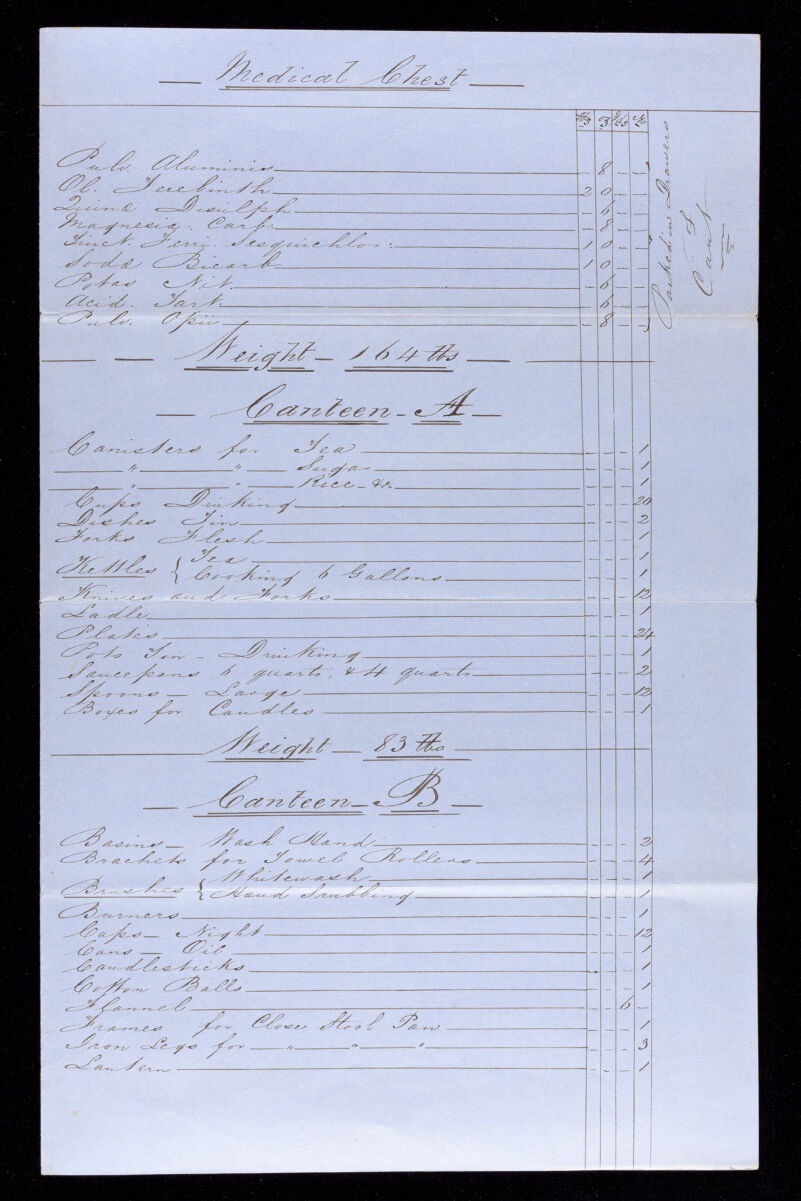 — Medical Chest —
lbs oz yds No
Pulv. Aluminis - 8 - -
Ol. Terebinth 2 0 - -
Quinæ Disulph - 6 - -
Magnesia. Carb: - 8 - -
Tinct. Ferri. Sesquichlor: 1 0 - -
Sodæ Bicarb 1 0 - -
Potas Nit. - 6 - -
Acid. Tart. - 6 - -
Pulv. Opii - 8 - -
Packed in Drawers
of
Cant
— — Weight – 164 lbs —
— Canteen – A —
Canisters for Tea - - - 1
" " Sugar - - - 1
" " Rice - &c. - - - 1
Cups Drinking - - - 20
Dishes Tin - - - 2
Forks Flesh - - - 1
Kettles { Tea - - - 1
Cooking 6 Gallons - - - 1
Knives and Forks - - - 12
Ladle - - - 1
Plates - - - 24
Pots Tin - Drinking - - - 1
Saucepans 6 quarts, & 4 quarts - - - 2
Spoons – Large - - - 12
Boxes for Candles - - - 1
Weight – 83 lbs
— Canteen – B —
Basins – Wash Hand - - - 2
Brackets for Towel Rollers - - - 4
Brushes { Whitewash - - - 1
Hand Srubbing - - - 1
Burners - - - 1
Caps – Night - - - 12
Cans – Oil - - - 1
Candlesticks - - - 1
Cotton Balls - - - 1
Flannel - - 6 -
Frames for Close Stool Pan - - - 1
Iron Legs for " " " - - - 3
Lantern - - - 1